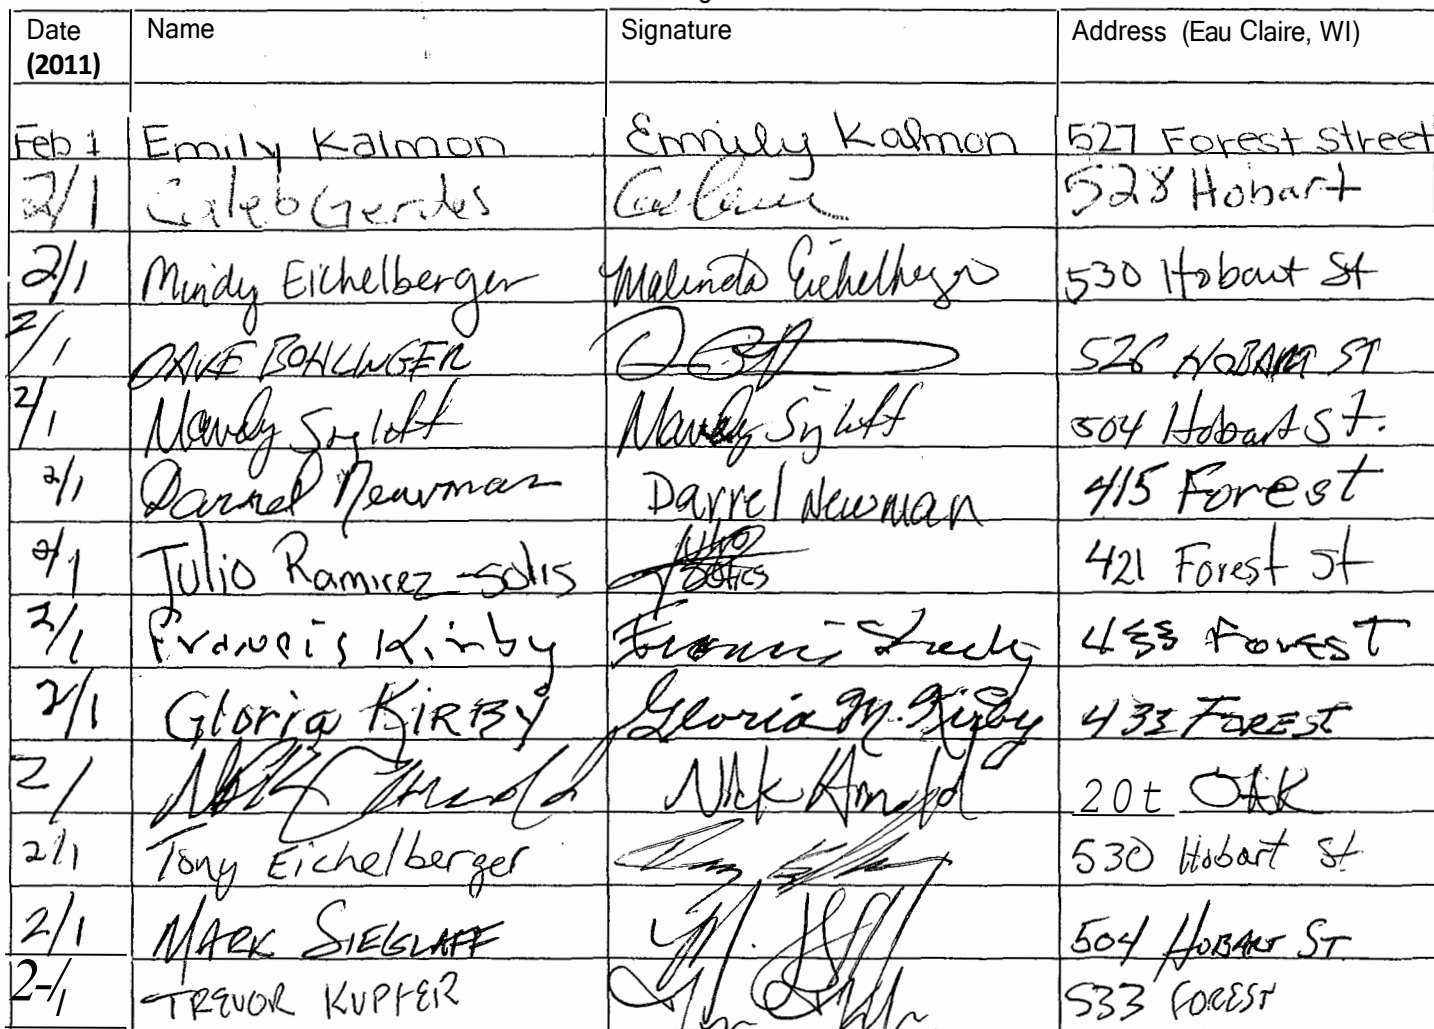 Date Name Signature Address (Eau Claire, WI)
(2011)
Feb 1 Emily Kalmon Emily Kalmon 527 Forest Street
2/1 Caleb Gerdes 528 Hobart
2/1 Mindy Eichelberger Malinda Eichelberger 530 Hobart St
2/1 DAVE BOHLINGER 526 HOBART ST
2/1 Mandy Sieglaff Mandy Sieglaff 504 Hobart St.
2/1 Darrel Newman Darrel Newman 415 Forest
2/1 Julio Ramirez-Solis Julio Solics 421 Forest St
2/1 Francis Kirby Francis Kirby 433 Forest
2/1 Gloria KIRBY Gloria M. Kirby 433 FOREST
2/1 Nick Arnold Nick Arnold 20t OAK
2/1 Tony Eichelberger 530 Hobart St
2/1 MARK SIEGLAFF 504 HOBART ST.
2-/1 TREVOR KUPFER 533 FOREST